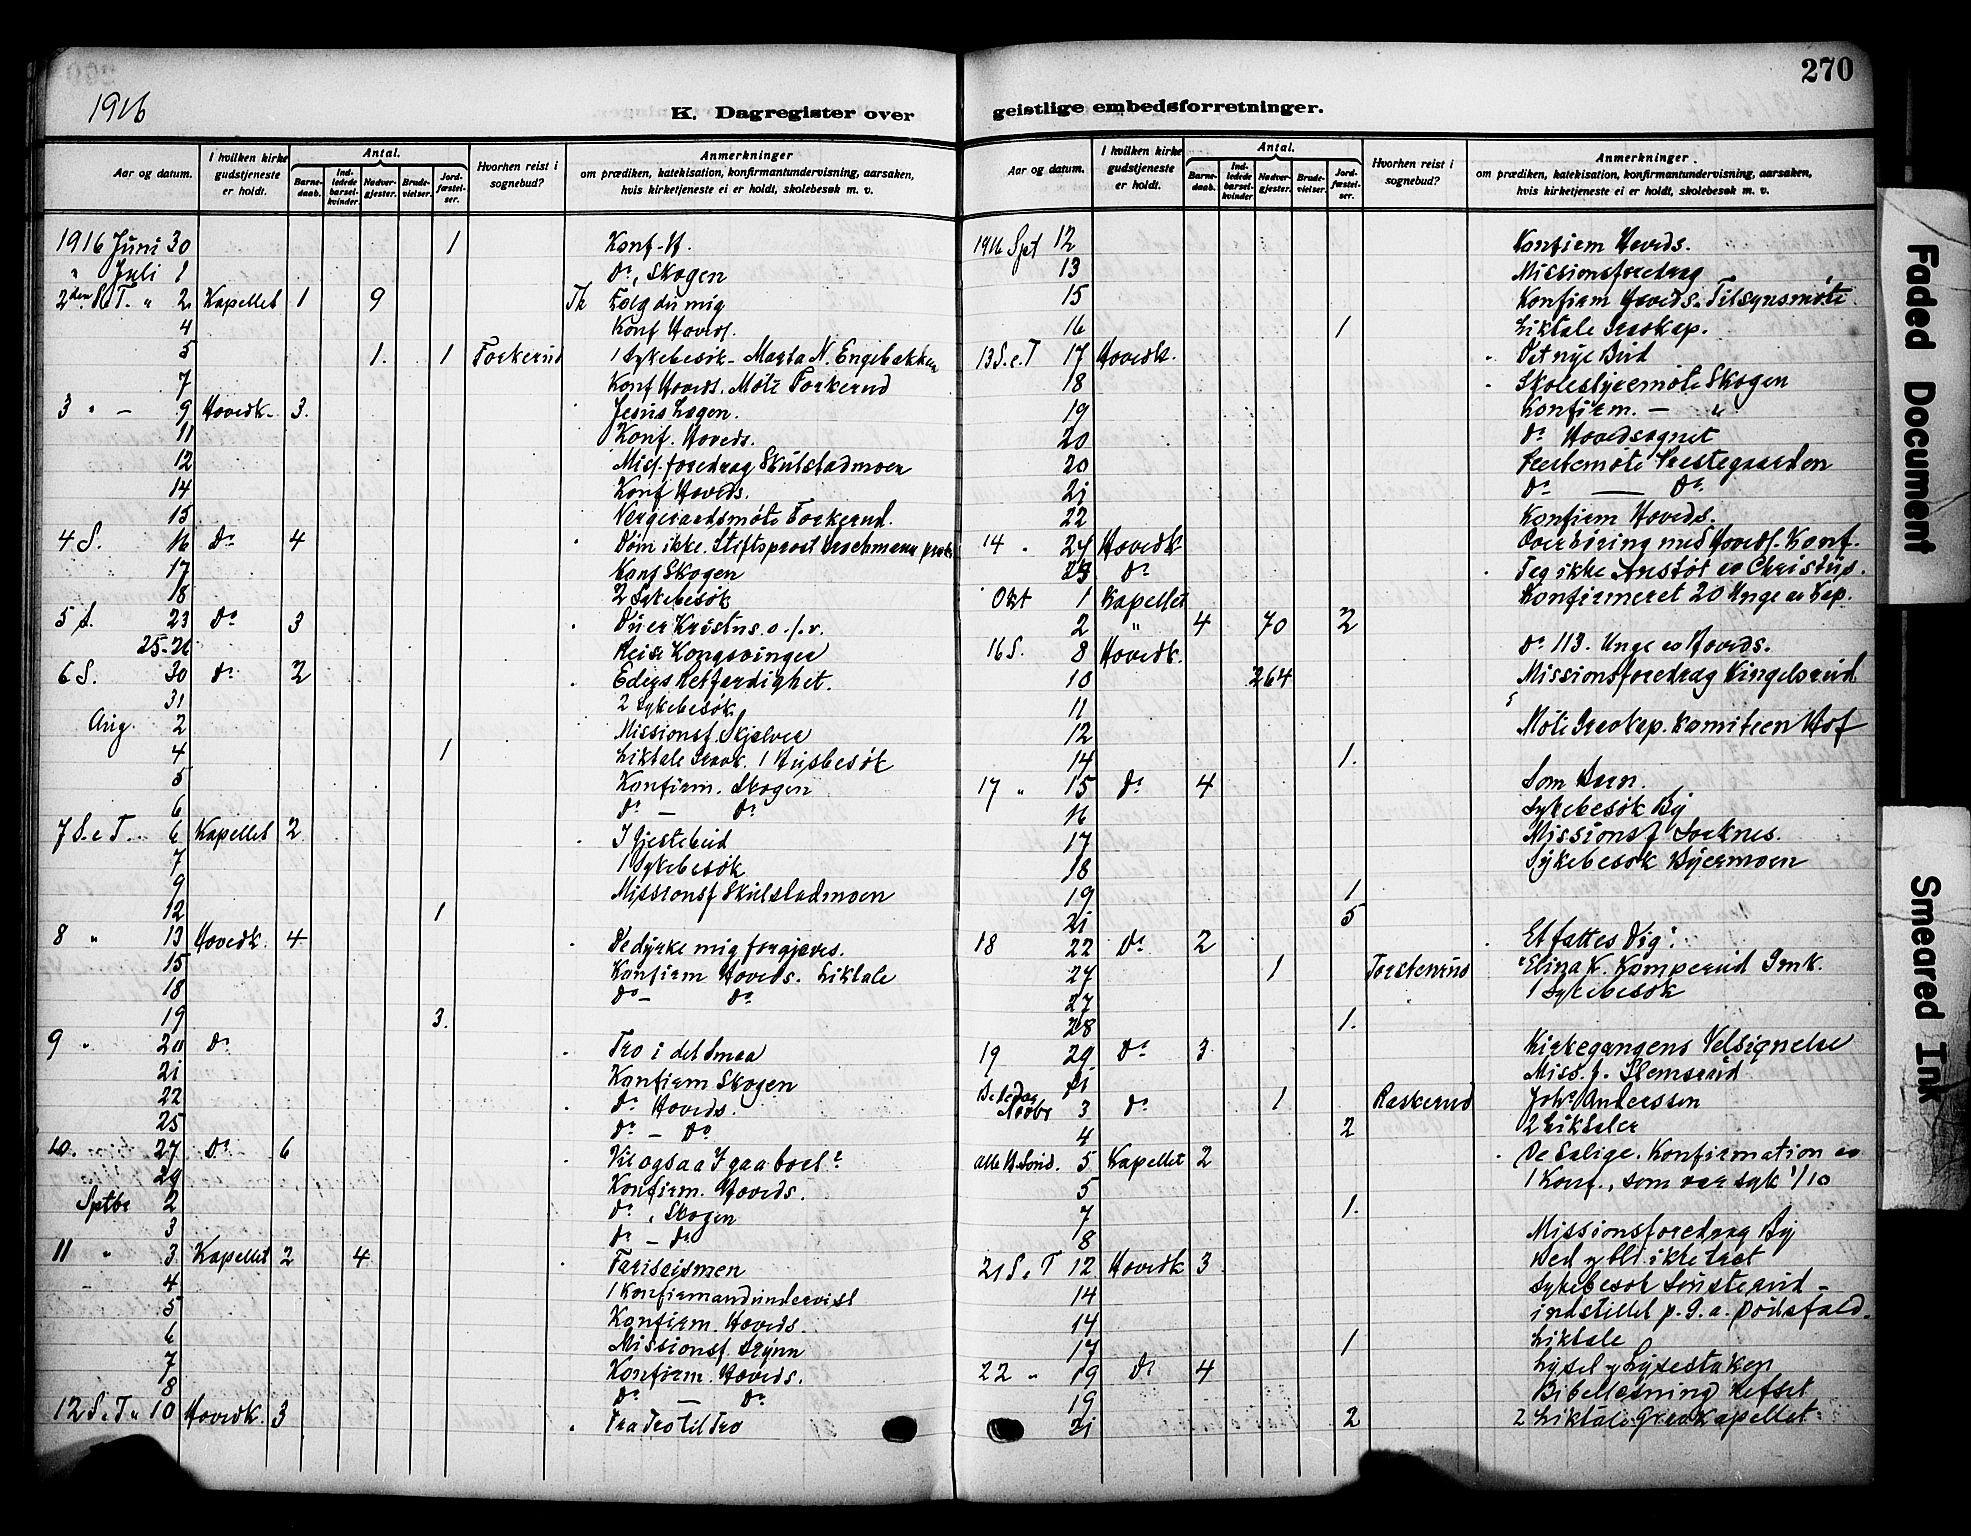 270
1916
K. Dagregister over geistlige embedsforretninger.
Aar og datum.
I hvilken kirke gudstjeneste er holdt.
Antal.
Barnedaab.
Indledede barselkvinder
Nadvergjester.
Brudevielser.
Jordfæstelser.
Hvorhen reist i sognebud?
Anmerkninger
om prædiken, katekisation, konfirmantundervisning, aarsaken,
hvis kirketjeneste ei er holdt, skolebesøk m. v.
1916 Juni 30 1 Konf.
" Juli 1 Do, Skogen
2den S.e.T. " 2 Kapellet 1 9 Følg du mig
4 Konf Hoveds.
5 1. 1 Torkerud 1 Sykebesøk - Marta N. Engebakken
7 Konf Hoveds. Møte Torkerud
3 " - 9 Hovedk. 3. Jesus Lægen.
11 Konf. Hoveds.
12 Miss. foredrag Skulstadmoen
14 Konf Hoveds.
15 Vergeraadsmøte Torkerud.
4 S. 16 Do 4 Døm ikke. Stiftsprost
17 Konf Skogen
18 2 Sykebesøk
5 S. 23 Do 3 Du er Kristus o.s.v.
25-26 Reise Kongsvinger
6 S. 30 Do 2 Eders Retfærdighet.
31 2 Sykebesøk
Aug. 2 Missionsf. Skjelver
4 1 Liktale Gravk. 1 Husbesøk
5 Konfirm. Skogen
6 Do - Do
7 S.e T. " 6 Kapellet 2 I Gjestebud
7 1 Sykebesøk
9 Missionsf Skulstadmoen
12 1
8 " 13 Hovedk. 4 De dyrke mig forgjæves.
15 Konfirm Hoveds. Liktale
18 Do - Do
19 3.
9 " 20 Do Tro i det Smaa
21 Konfirm Skogen
22 Do Hoveds.
25 Do - Do
10. 27 Do 6 Vil ogsaa I gaa bort?
29 Konfirm. Hoveds.
Sptbr 2 Do, Skogen
3 Do - Do
11 " 3 Kapellet 2 4 Fariseismen
4 1 Konfirmandundervisl
5 Konfirm. Hoveds.
6 Missionsf. Grynn
7 Konfirm. Hoveds.
8 Do - Do
12 S.e.T. " 10 Hovedk. 3 Fra Tro til Tro
Aar og datum.
I hvilken kirke gudstjeneste er holdt.
Antal.
Barnedaab.
Indledede barselkvinder
Nadvergjester.
Brudevielser.
Jordfæstelser.
Hvorhen reist i sognebud?
Anmerkninger.
om prædiken, katekisation, konfirmantundervisning, aarsaken,
hvis kirketjeneste ei er holdt, skolebesøk m. v.
1916 Spt 12 Konfirm Hoveds.
13 Missionsforedrag
15 Konfirm Hoveds. Tilsynsmøte
16 1 Liktale Gravkap.
13 S.e.T 17 Hovedk. Det nye Bud
18 Skolestyremøte Skogen
19 Konfirm. - "
20 Do Hovedsognet
20 Prestemøte Prestegaarden
21 Do - Do
22 Konfirm Hoveds.
14 " 24 Hovedk Overhøring med Hoveds. Konf.
23 Do Tag ikke Anstøt av Christus.
Okt 1 Kapellet Konfirmeret 20 Unge av Kap.
2 " 4 70 2
16 S. 8 Hovedk. Do 113. Unge av Hoveds.
10 264 Missionsforedrag Kingelsrud
11
12 Møte Gravkap. komiteen Hof
14 1.
17 " 15 Do 4 Som Barn.
16 Sykebesøk By
17 Missionsf Sorknes.
18 Sykebesøk Byermoen
19 1
21 5
18 22 Do 2 Et fattes Dig!
27 1 Torstenrud Elina K. Kamperud Enk.
27 1 Sykebesøk
28 1.
19 29 Do 3 Kirkegangens Velsignelse
31 Miss. f. Slemsrud
Bededag Novbr 3 Do 1 Raskerud Joh. Anderssen
4 2 2 Liktaler
alle H. Sønd. 5 Kapellet 2 De Salige. Konfirmation av
5 1 Konf., som var syk 1/10
7 1.
8 Missionsforedrag By
21 S.e T 12 Hovedk 3 Bed og bli ikke træt
14 Sykebesøk Susterud -
14 indstillet p. g. a. dødsfald.
17 1 Liktale
22 " 19 Do 4 Lyset og Lysestaken
19 Bibellæsning Hefset
21 2 2 Liktale Gravkapellet
Faded Document
Smeared Ink